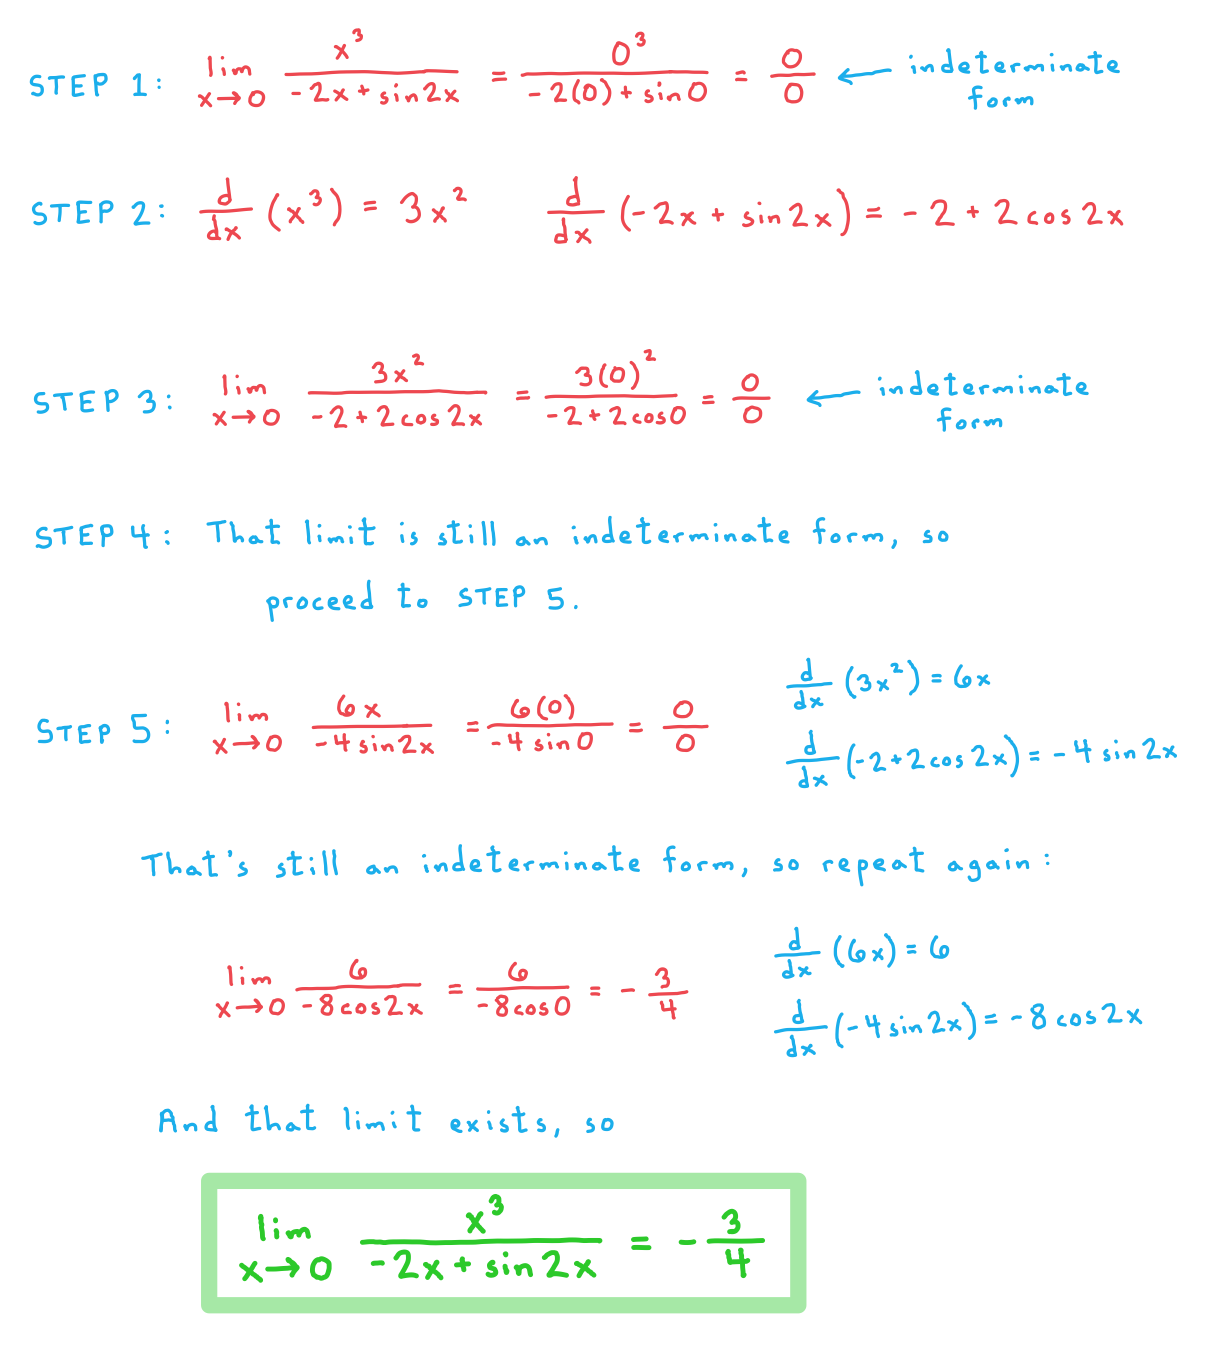 STEP 1: lim x→0 x³ / (-2x + sin2x) = 0³ / (-2(0) + sin0) = 0/0 ← indeterminate form
STEP 2: d/dx (x³) = 3x² d/dx (-2x + sin2x) = -2 + 2cos2x
STEP 3: lim x→0 3x² / (-2 + 2cos2x) = 3(0)² / (-2 + 2cos0) = 0/0 ← indeterminate form
STEP 4: That limit is still an indeterminate form, so
proceed to STEP 5.
STEP 5: lim x→0 6x / (-4sin2x) = 6(0) / (-4sin0) = 0/0
d/dx (3x²) = 6x
d/dx (-2+2cos2x) = -4sin2x
That's still an indeterminate form, so repeat again:
lim x→0 6 / (-8cos2x) = 6 / (-8cos0) = -3/4
d/dx (6x) = 6
d/dx (-4sin2x) = -8cos2x
And that limit exists, so
lim x→0 x³ / (-2x + sin2x) = -3/4